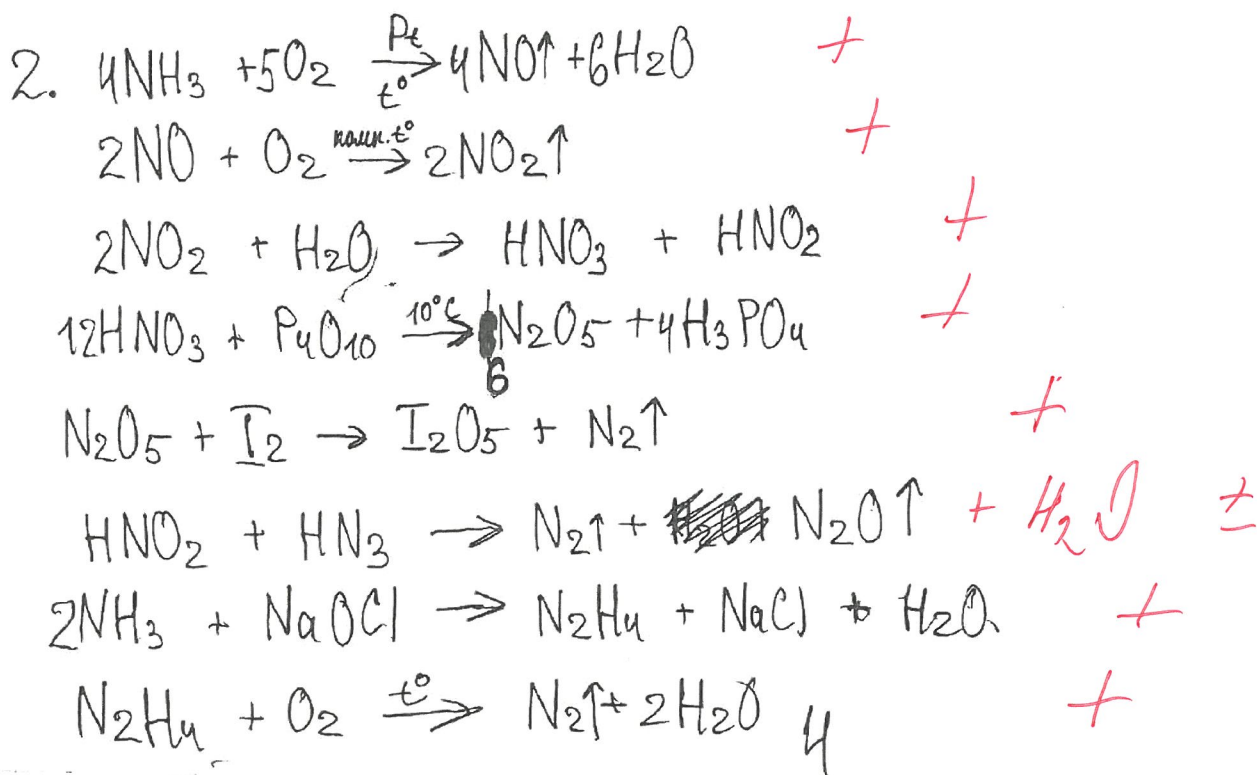 2. 4NH3 +5O2 Pt t° → 4NO↑ +6H2O +
2NO + O2 комн. t° → 2NO2↑ +
2NO2 + H2O → HNO3 + HNO2 +
12HNO3 + P4O10 10°C → 6N2O5 +4H3PO4 +
N2O5 + I2 → I2O5 + N2↑ +
HNO2 + HN3 → N2↑ + N2O↑ + H2O ±
2NH3 + NaOCl → N2H4 + NaCl + H2O +
N2H4 + O2 t° → N2↑ + 2H2O 4 +